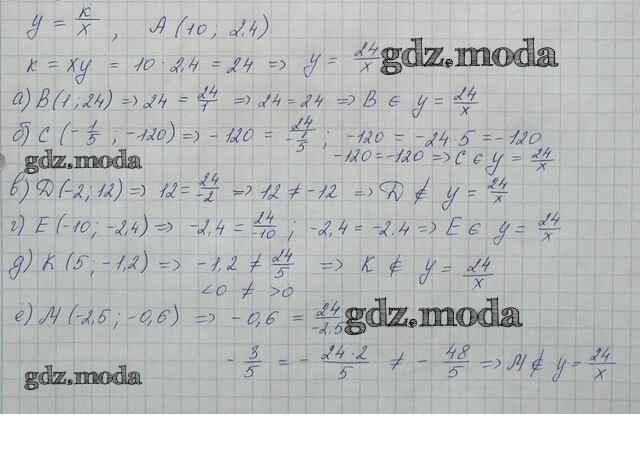 y = к/x , A (10 ; 2,4)
к = xy = 10 · 2,4 = 24 => y = 24/x gdz.moda
а) B (1 ; 24) => 24 = 24/1 => 24 = 24 => B ∈ y = 24/x
б) C (- 1/5 ; -120) => -120 = 24/(-1/5) ; -120 = -24·5 = -120
gdz.moda -120 = -120 => C ∈ y = 24/x
в) D (-2 ; 12) => 12 = 24/-2 => 12 ≠ -12 => D ∉ y = 24/x
г) E (-10 ; -2,4) => -2,4 = 24/-10 ; -2,4 = -2.4 => E ∈ y = 24/x
д) K (5 ; -1,2) => -1,2 ≠ 24/5 => K ∉ y = 24/x
<0 ≠ >0
е) M (-2,5 ; -0,6) => -0,6 = 24/-2.5 gdz.moda
- 3/5 = - 24·2/5 ≠ - 48/5 => M ∉ y = 24/x
gdz.moda